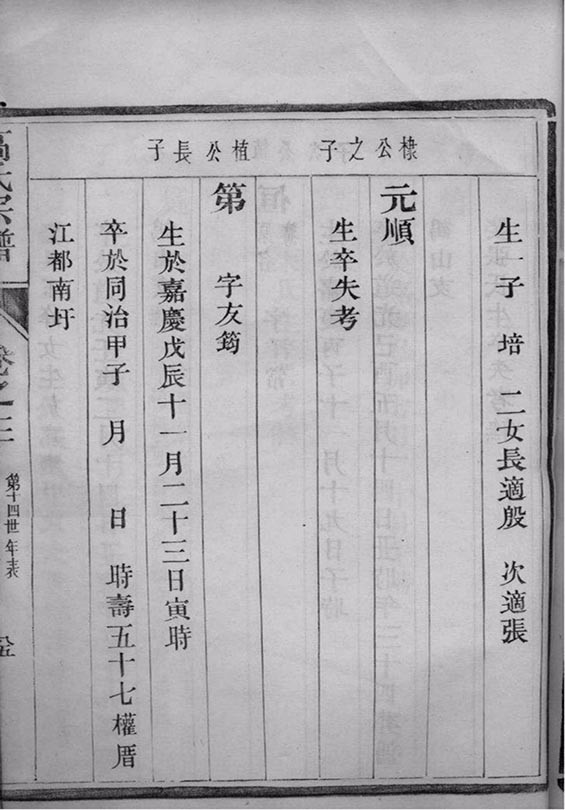 生一子 培 二女長適殷 次適張
棣公之子
元順
生卒失考
植公長子
第 字友筠
生於嘉慶戊辰十一月二十三日寅時
卒於同治甲子 月 日 時壽五十七權厝
江都南圩
氏宗譜
卷之三
第十四世年表